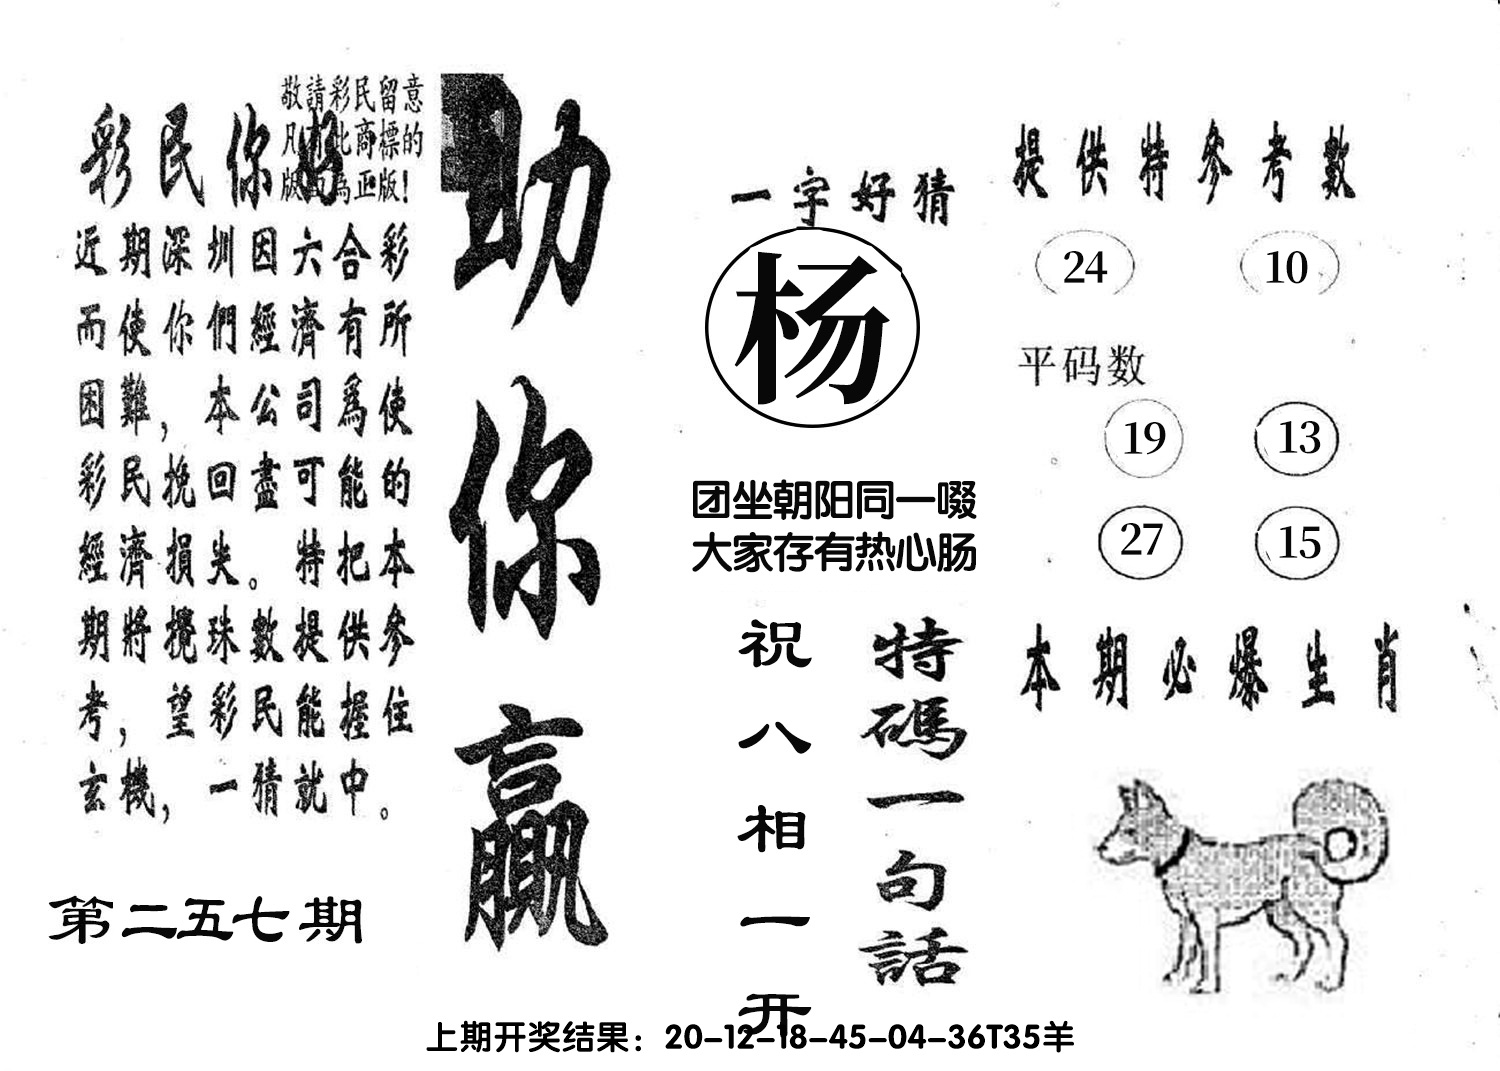 敬請彩民留意
凡有此商標的
版面為正版！
彩民你好
近期深圳因六合彩
而使你們經濟有所
困難，本公司爲使
彩民挽回盡可能的
經濟損失。特把本
期將攪珠數提供參
考，望彩民能握住
玄機，一猜就中。
第二五七期
助你贏
一字好猜
杨
团坐朝阳同一啜
大家存有热心肠
特碼一句話
祝八相一开
提供特參考數
24 10
平码数
19 13
27 15
本期必爆生肖
上期开奖结果：20-12-18-45-04-36T35羊